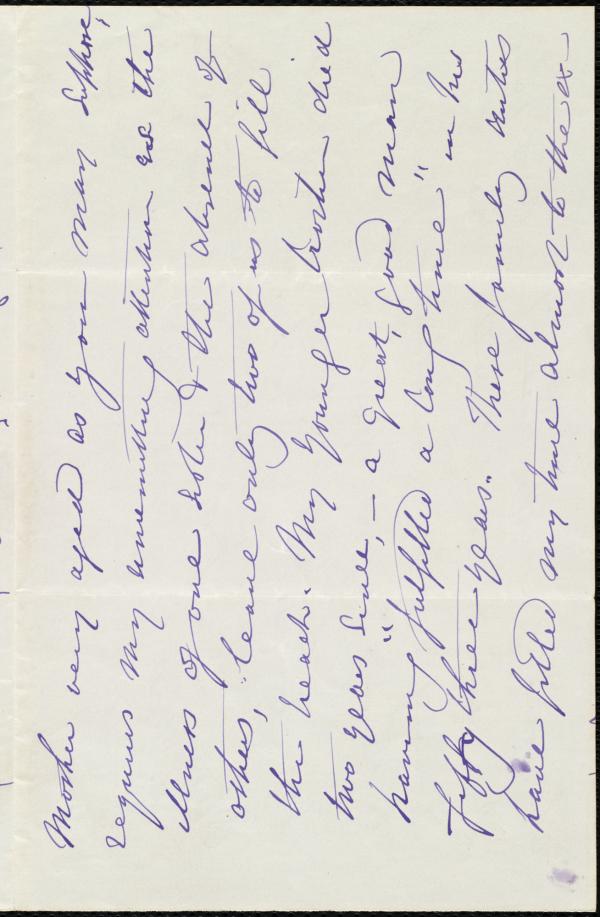 Mother very aged as you may suppose,
requires my unremitting attention as the
illness of one sister & the absence of
others, leave only two of us to fill
the breach. My younger brother died
two years since, – a great, good man
having "fulfilled a long time" in his
fifty three years. These family duties
have filled my time almost to the ex-